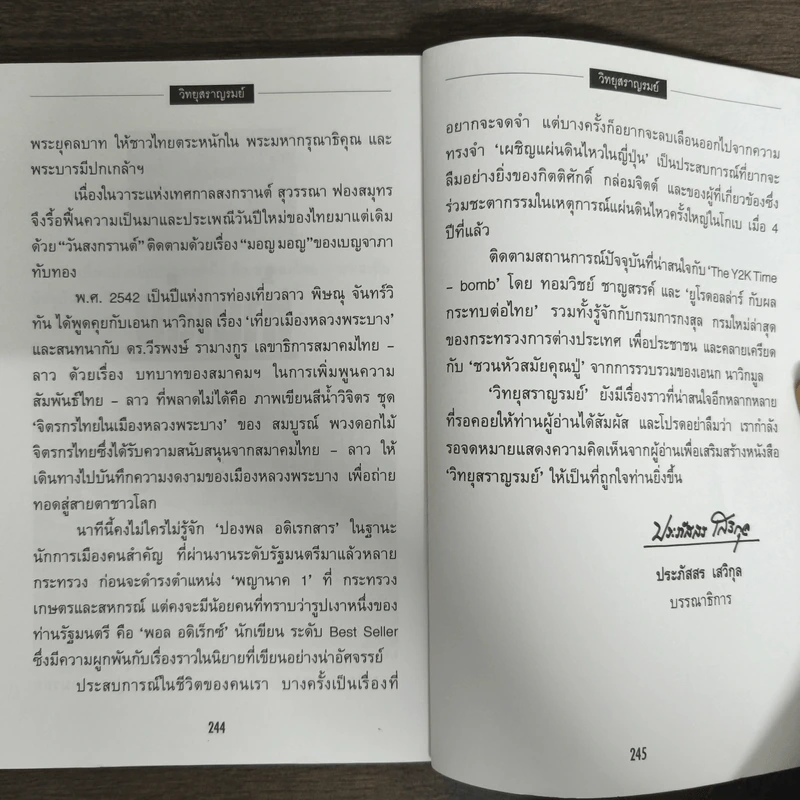 วิทยุสราญรมย์
พระยุคลบาท ให้ชาวไทยตระหนักใน พระมหากรุณาธิคุณ และ
พระบารมีปกเกล้าฯ
เนื่องในวาระแห่งเทศกาลสงกรานต์ สุวรรณา ฟองสมุทร
จึงรื้อฟื้นความเป็นมาและประเพณีวันปีใหม่ของไทยมาแต่เดิม
ด้วย “วันสงกรานต์” ติดตามด้วยเรื่อง “มอญ มอญ” ของเบญจาภา
ทับทอง
พ.ศ. 2542 เป็นปีแห่งการท่องเที่ยวลาว พิษณุ จันทร์วิ
ทัน ได้พูดคุยกับเอนก นาวิกมูล เรื่อง ‘เที่ยวเมืองหลวงพระบาง’
และสนทนากับ ดร.วีรพงษ์ รามางกูร เลขาธิการสมาคมไทย –
ลาว ด้วยเรื่อง บทบาทของสมาคมฯ ในการเพิ่มพูนความ
สัมพันธ์ไทย – ลาว ที่พลาดไม่ได้คือ ภาพเขียนสีน้ำวิจิตร ชุด
‘จิตรกรไทยในเมืองหลวงพระบาง’ ของ สมบูรณ์ พวงดอกไม้
จิตรกรไทยซึ่งได้รับความสนับสนุนจากสมาคมไทย – ลาว ให้
เดินทางไปบันทึกความงดงามของเมืองหลวงพระบาง เพื่อถ่าย
ทอดสู่สายตาชาวโลก
นาทีนี้คงไม่ใครไม่รู้จัก ‘ปองพล อดิเรกสาร’ ในฐานะ
นักการเมืองคนสำคัญ ที่ผ่านงานระดับรัฐมนตรีมาแล้วหลาย
กระทรวง ก่อนจะดำรงตำแหน่ง ‘พญานาค 1’ ที่ กระทรวง
เกษตรและสหกรณ์ แต่คงจะมีน้อยคนที่ทราบว่ารูปเงาหนึ่งของ
ท่านรัฐมนตรี คือ ‘พอล อดิเร็กซ์’ นักเขียน ระดับ Best Seller
ซึ่งมีความผูกพันกับเรื่องราวในนิยายที่เขียนอย่างน่าอัศจรรย์
ประสบการณ์ในชีวิตของคนเรา บางครั้งเป็นเรื่องที่
244
วิทยุสราญรมย์
อยากจะจดจำ แต่บางครั้งก็อยากจะลบเลือนออกไปจากความ
ทรงจำ ‘เผชิญแผ่นดินไหวในญี่ปุ่น’ เป็นประสบการณ์ที่ยากจะ
ลืมอย่างยิ่งของกิตติศักดิ์ กล่อมจิตต์ และของผู้ที่เกี่ยวข้องซึ่ง
ร่วมชะตากรรมในเหตุการณ์แผ่นดินไหวครั้งใหญ่ในโกเบ เมื่อ 4
ปีที่แล้ว
ติดตามสถานการณ์ปัจจุบันที่น่าสนใจกับ ‘The Y2K Time
– bomb’ โดย ทอมวิชย์ ชาญสรรค์ และ ‘ยูโรดอลล่าร์ กับผล
กระทบต่อไทย’ รวมทั้งรู้จักกับกรมการกงสุล กรมใหม่ล่าสุด
ของกระทรวงการต่างประเทศ เพื่อประชาชน และคลายเครียด
กับ ‘ชวนหัวสมัยคุณปู่’ จากการรวบรวมของเอนก นาวิกมูล
‘วิทยุสราญรมย์’ ยังมีเรื่องราวที่น่าสนใจอีกหลากหลาย
ที่รอคอยให้ท่านผู้อ่านได้สัมผัส และโปรดอย่าลืมว่า เรากำลัง
รอจดหมายแสดงความคิดเห็นจากผู้อ่านเพื่อเสริมสร้างหนังสือ
‘วิทยุสราญรมย์’ ให้เป็นที่ถูกใจท่านยิ่งขึ้น
ประภัสสร เสวิกุล
ประภัสสร เสวิกุล
บรรณาธิการ
245